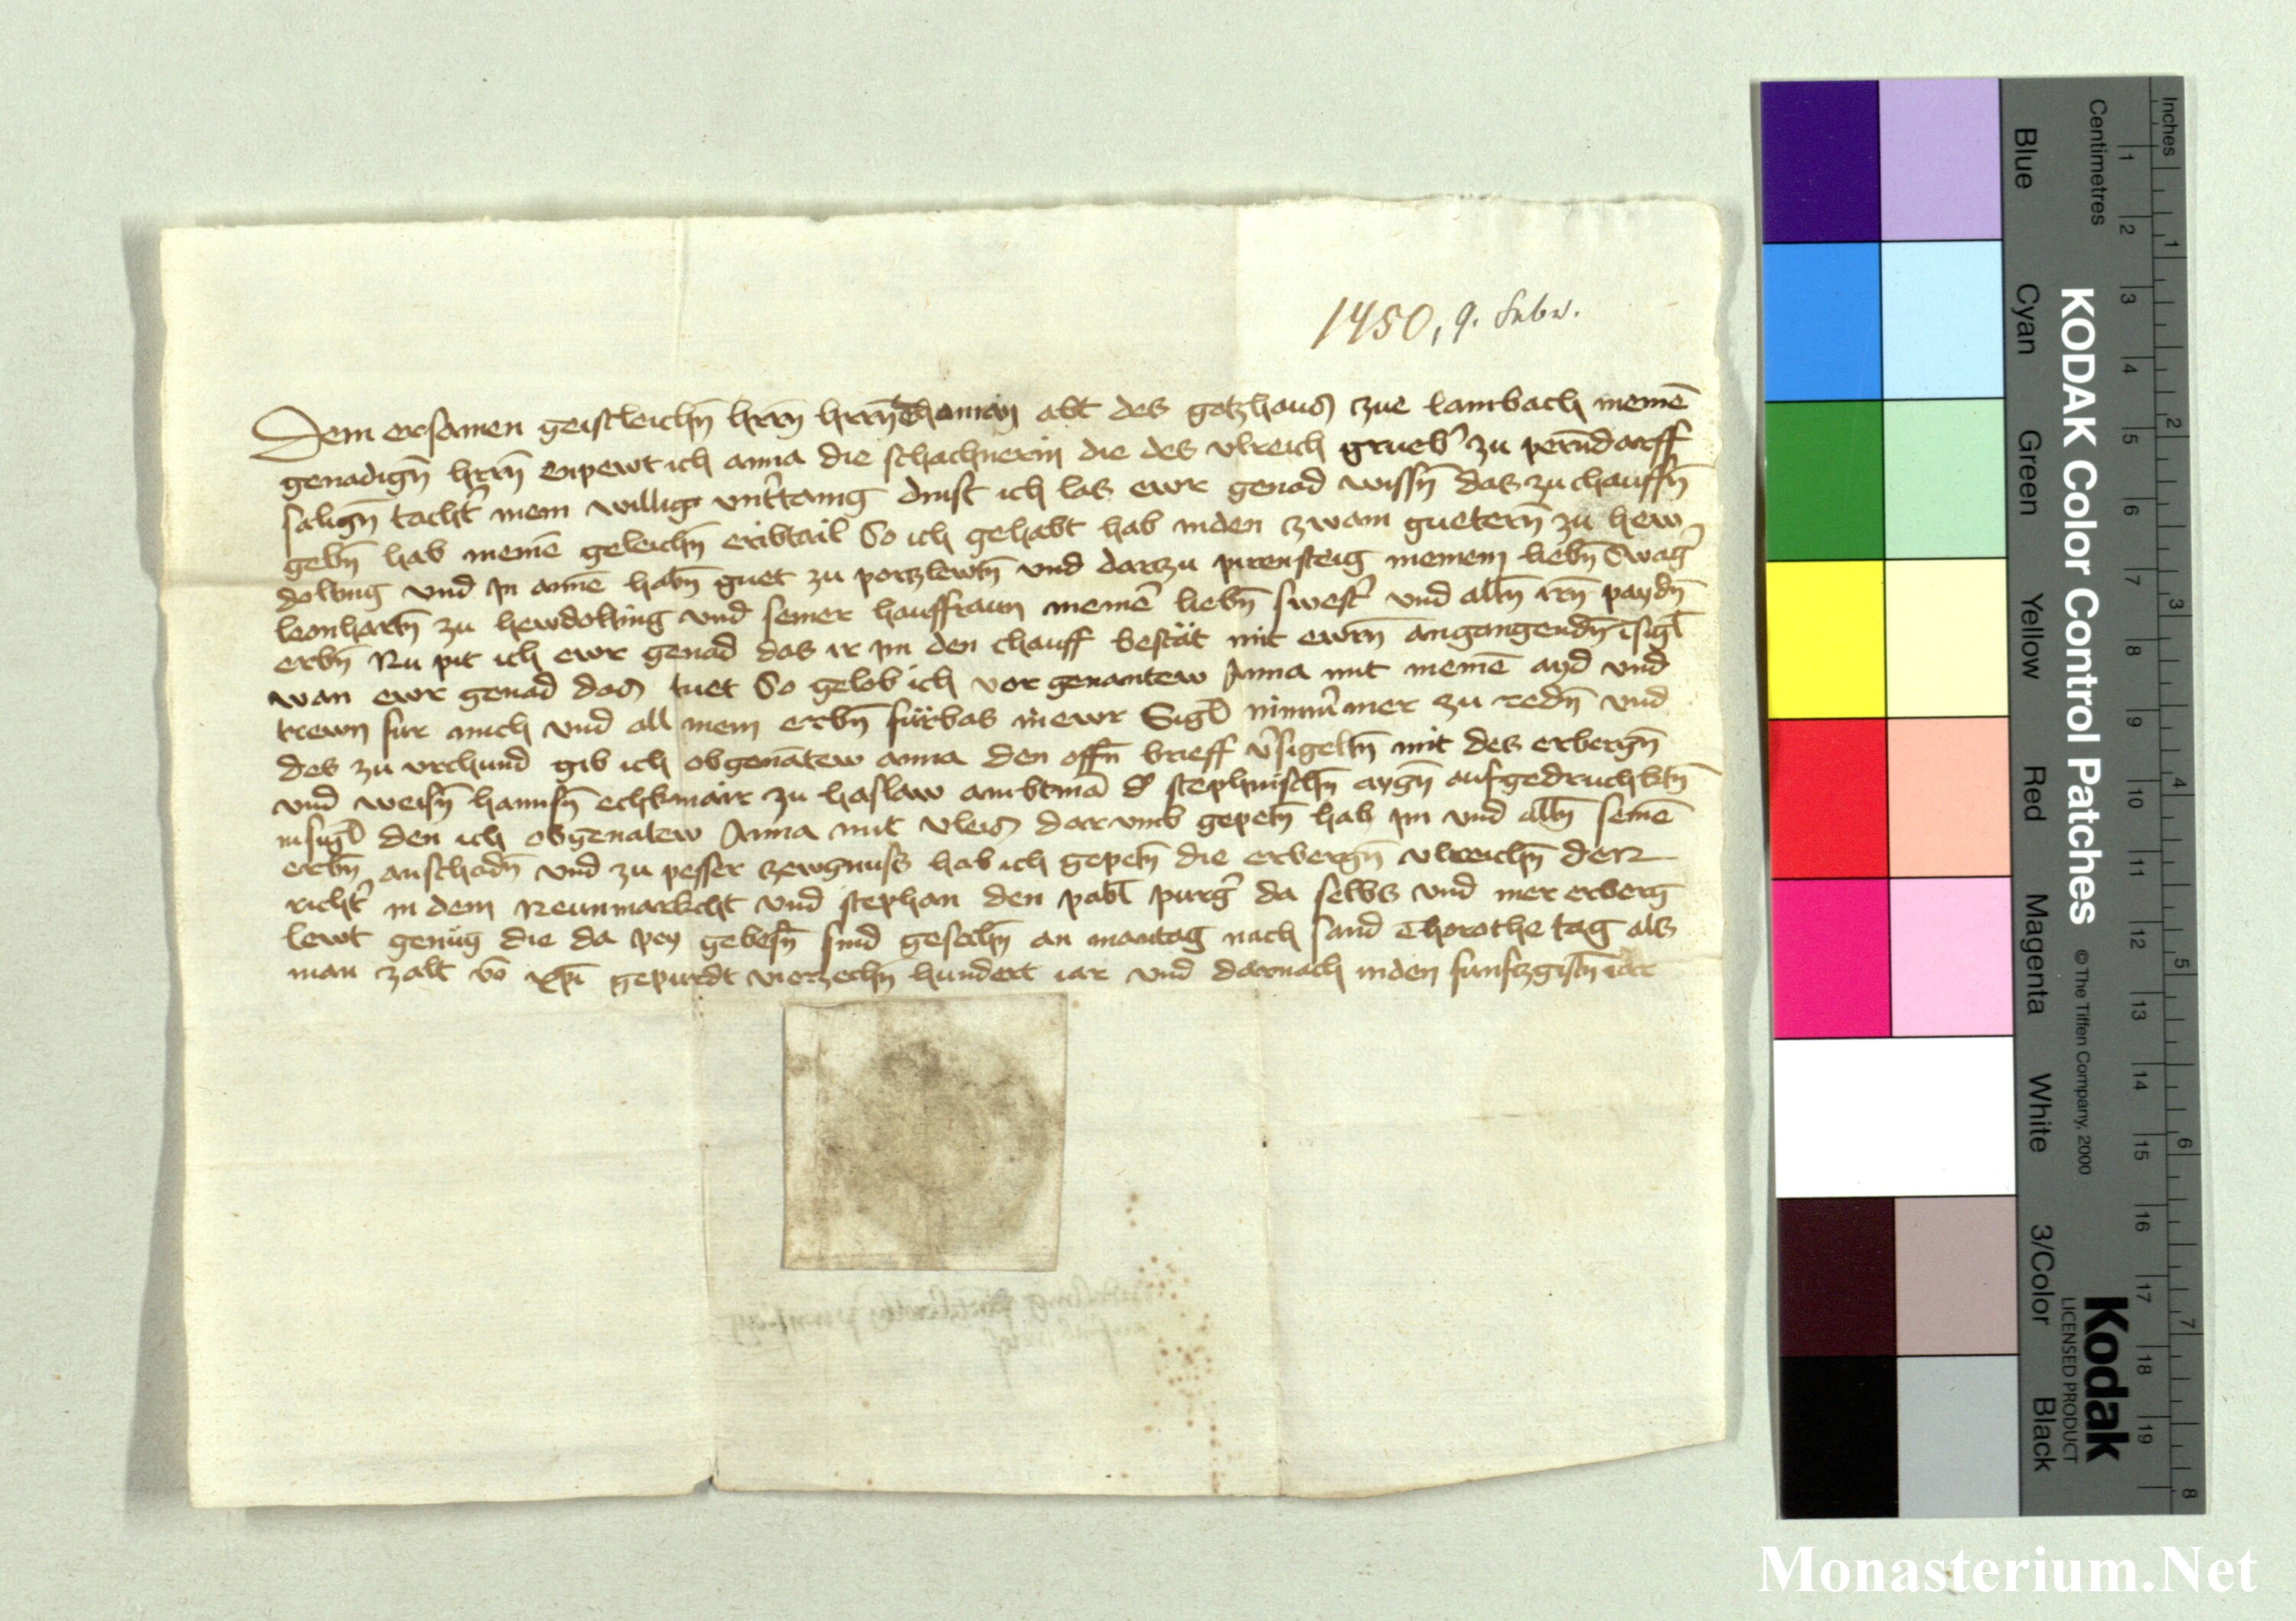 1450, 9. Febr.
Dem ersamen geistleichn̄ hern̄ hern̄ Thaman abt des gotzhaus zue lambach meinē
genadign̄ hern̄ enpewt ich anna die schachnerin die des vlreich grueb' zu pern̄dorff
salign̄ tacht' mein willig vnt'tanig dinst ich las ewr genad wissn̄ das zu chauffn̄
gebn̄ hab meinē geleichn̄ eribtail So ich gehabt hab in den zwain guetern̄ zu hew
dolting vnd in ainē halbn̄ guet zu portzlewtn̄ vnd dartzu pirensteig meinem liebn̄ Swag'
leonhartn̄ zu hewdolting vnd seiner hausfraun meinē liebn̄ swest' vnd alln̄ irn̄ paydn̄
erbn̄ Nu pit ich ewr genad das ir im den chauff bestät mit ewrn̄ anhangendn̄ īsigl
wan ewr genad das tuet So gelob ich vor genantew Anna mit meinē ayd vnd
trewn fur mich vnd all mein erbn̄ fürbas in ewr Sigl nimmer mer zu redn̄ vnd
des zu vrchund gib ich obgenātew anna den offn̄ brieff v'sigeltn̄ mit des erbergn̄
vnd weisn̄ hannsn̄ echkmair zu haslaw ambtmā d' stephnischn̄ aygn̄ aufgedruchktn̄
insigl den ich obgenātew Anna mit vleis dar vmb gepetn̄ hab im vnd alln̄ seinē
erbn̄ anschadn̄ vnd zu pesser zewgnuss hab ich gepetn̄ die erbergn̄ vlreichn̄ den
richt' in dem Neunmarkcht vnd stephan den pabl purg' da selbs vnd mer erberg
lewt genüg die da pey gebesn̄ sind geschehn̄ an mantag nach sand Thorothe tag als
man zalt vō xpī gepurdt vierzechn̄ hundert iar vnd darnach in den funfzgistn̄ iar
Inches
Centimetres
1 2 3 4 5 6 7 8
1 2 3 4 5 6 7 8 9 10 11 12 13 14 15 16 17 18 19
KODAK Color Control Patches
© The Tiffen Company, 2000
Kodak
LICENSED PRODUCT
Blue
Cyan
Green
Yellow
Red
Magenta
White
3/Color
Black
Monasterium.Net